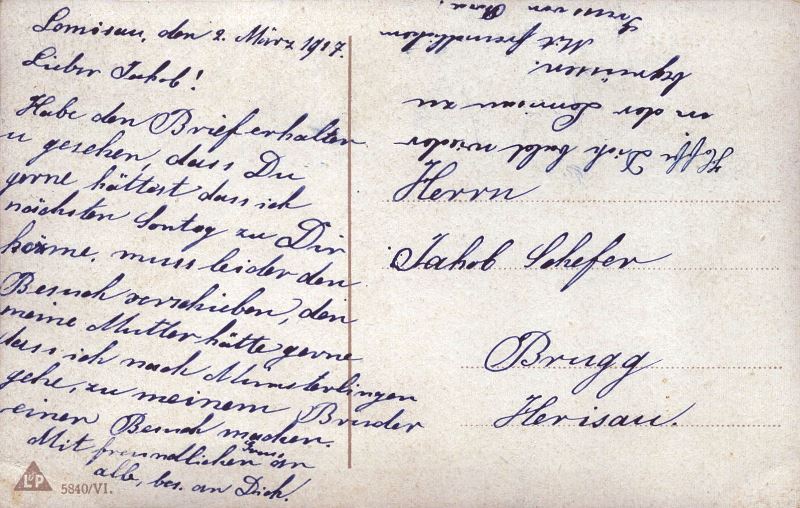 Lomisau, den 2. März 1917.
Lieber Jakob!
Habe den Brief erhalten
u gesehen, dass Du
gerne hättest dass ich
nächsten Sontag zu Dir
komme, muss leider den
Besuch verschieben, den
meine Mutter hätte gerne
dass ich nach Münsterlingen
gehe, zu meinem Bruder
einen Besuch machen.
Mit freundlichen Gruss an
alle, bes. an Dich.
Hoffe Dich bald wieder
in der Lomisau zu
begrüssen.
Mit freundlichem
Gruss von
Herrn
Jakob Schefer
Brugg
Herisau.
L&P
5840/VI.